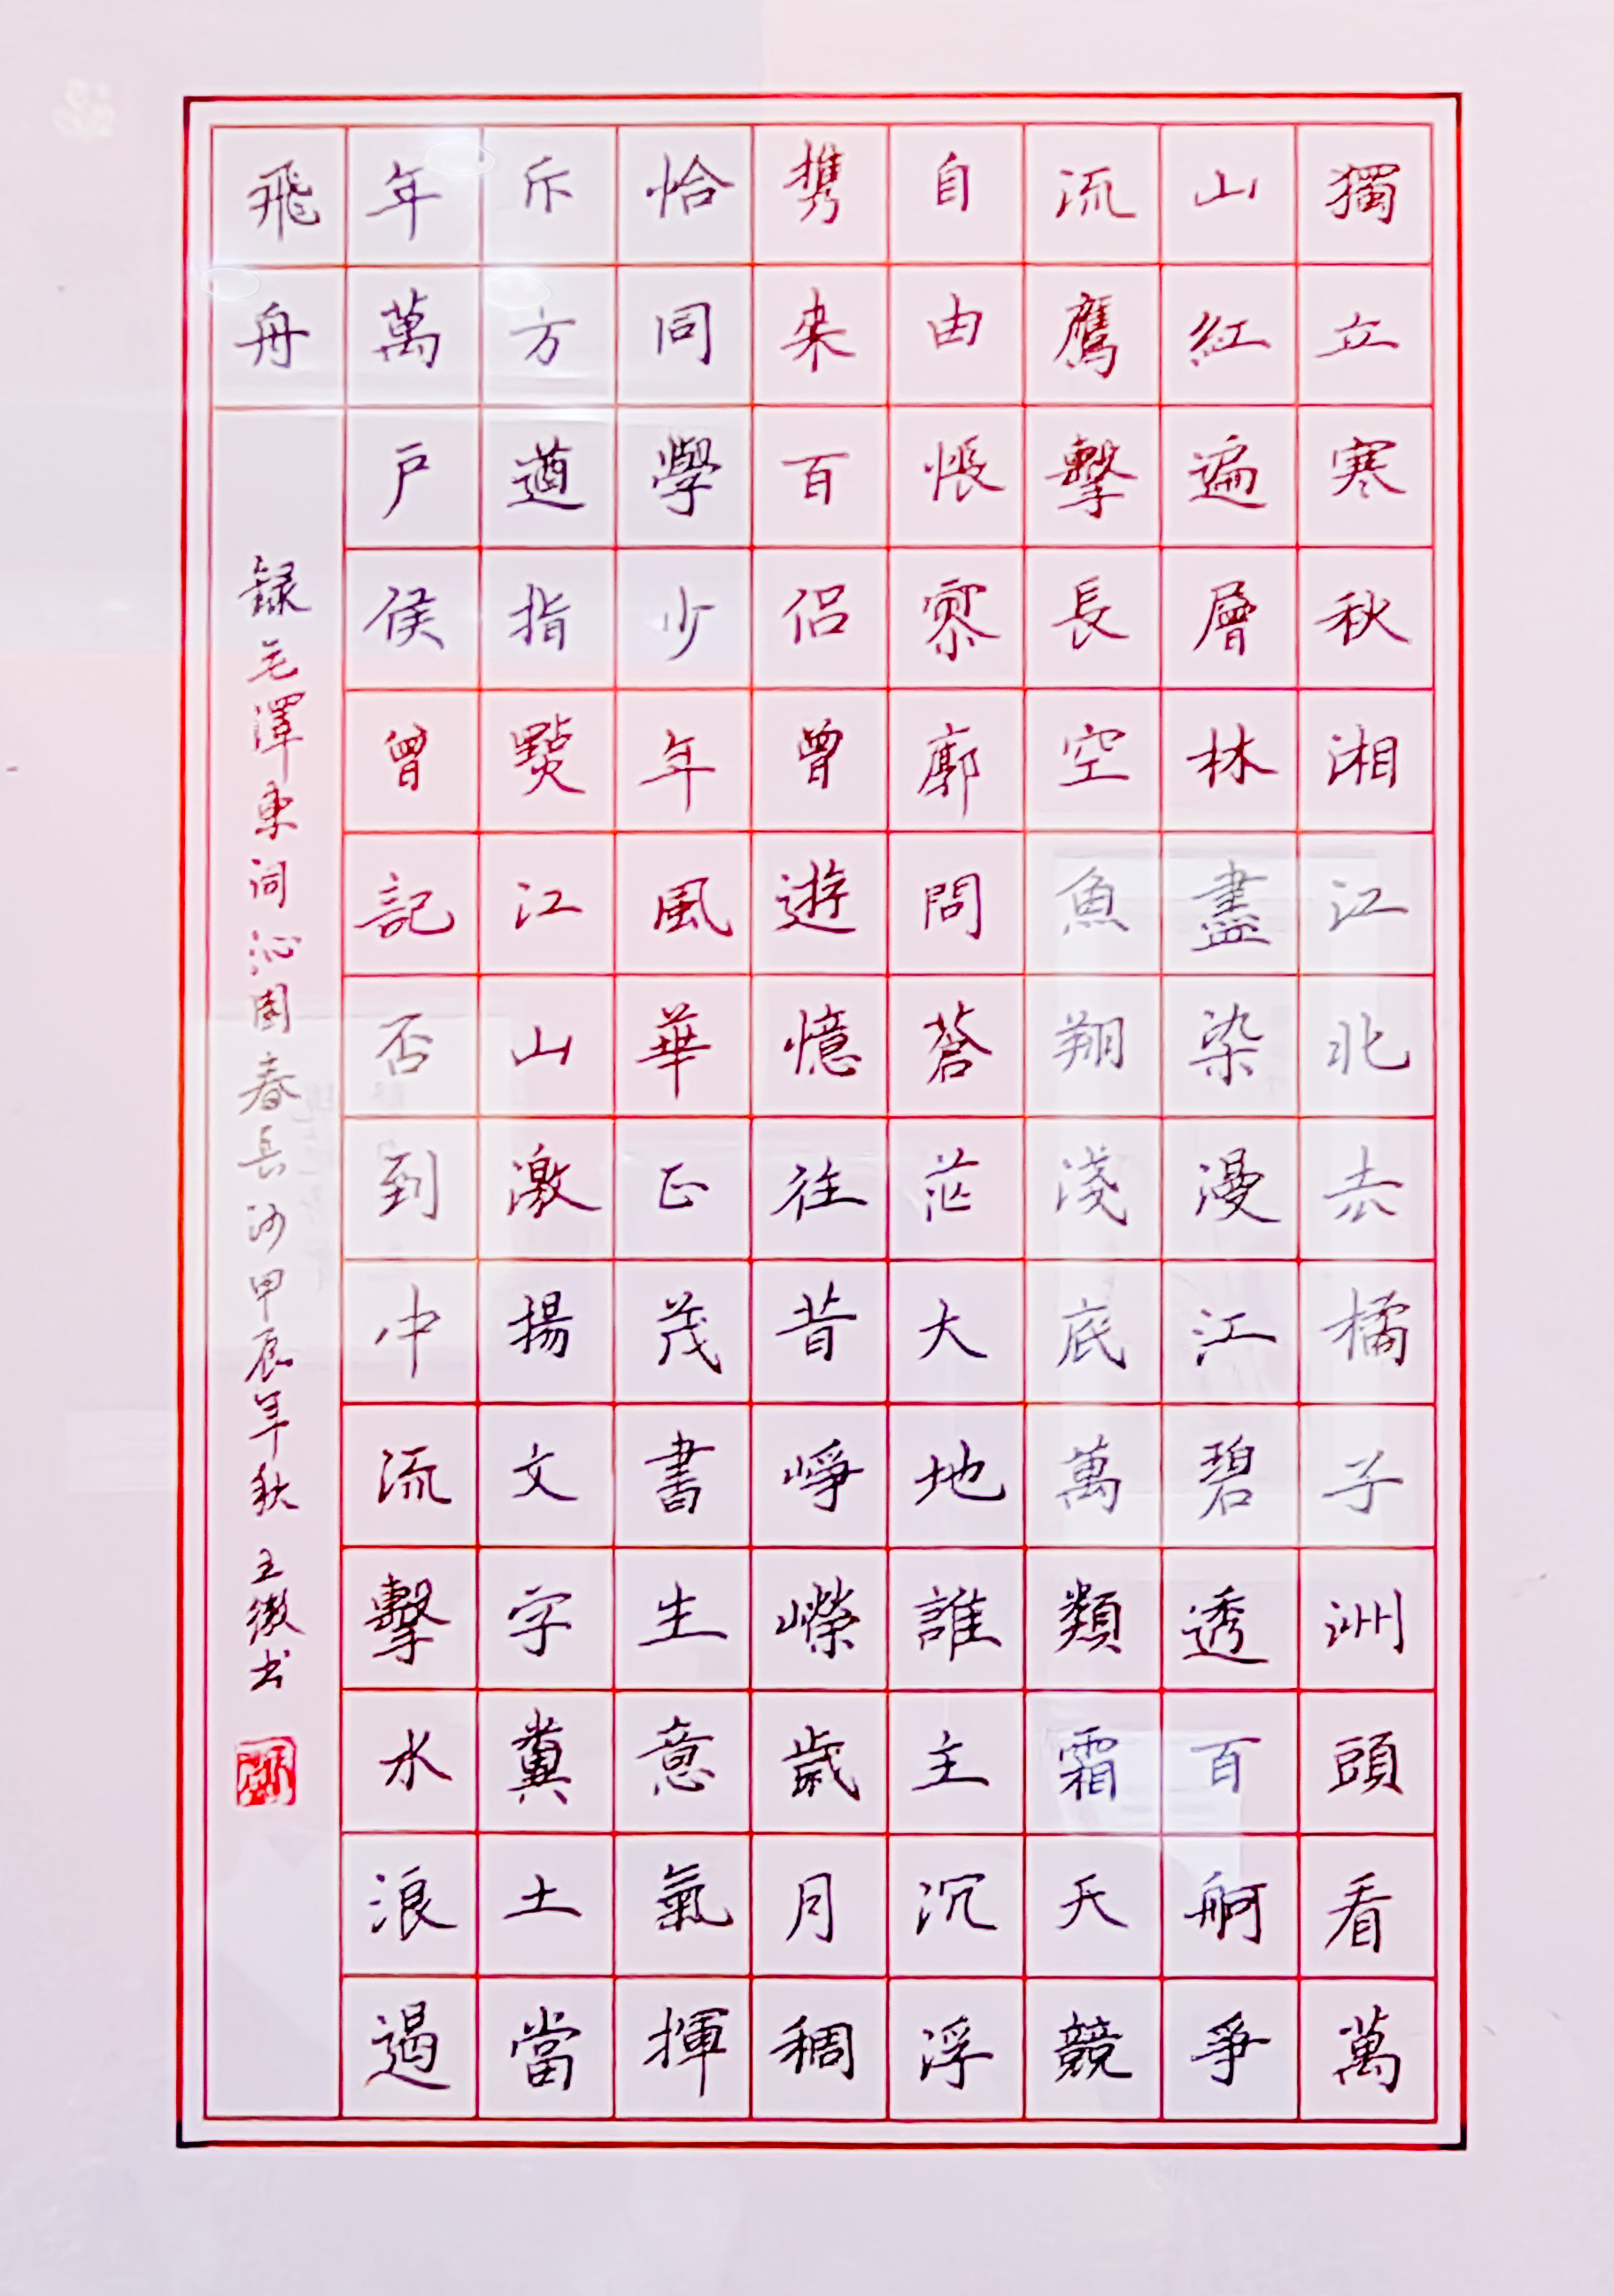 獨立寒秋湘江北去橘子洲頭看萬
山紅遍層林盡染漫江碧透百舸爭
流鷹擊長空魚翔淺底萬類霜天競
自由悵寥廓問蒼茫大地誰主沉浮
携来百侣曾遊憶往昔崢嶸歲月稠
恰同學少年風華正茂書生意氣揮
斥方遒指點江山激揚文字糞土當
年萬户侯曾記否到中流擊水浪遏
飛舟
録毛澤東词沁園春長沙甲辰年秋 王徽书